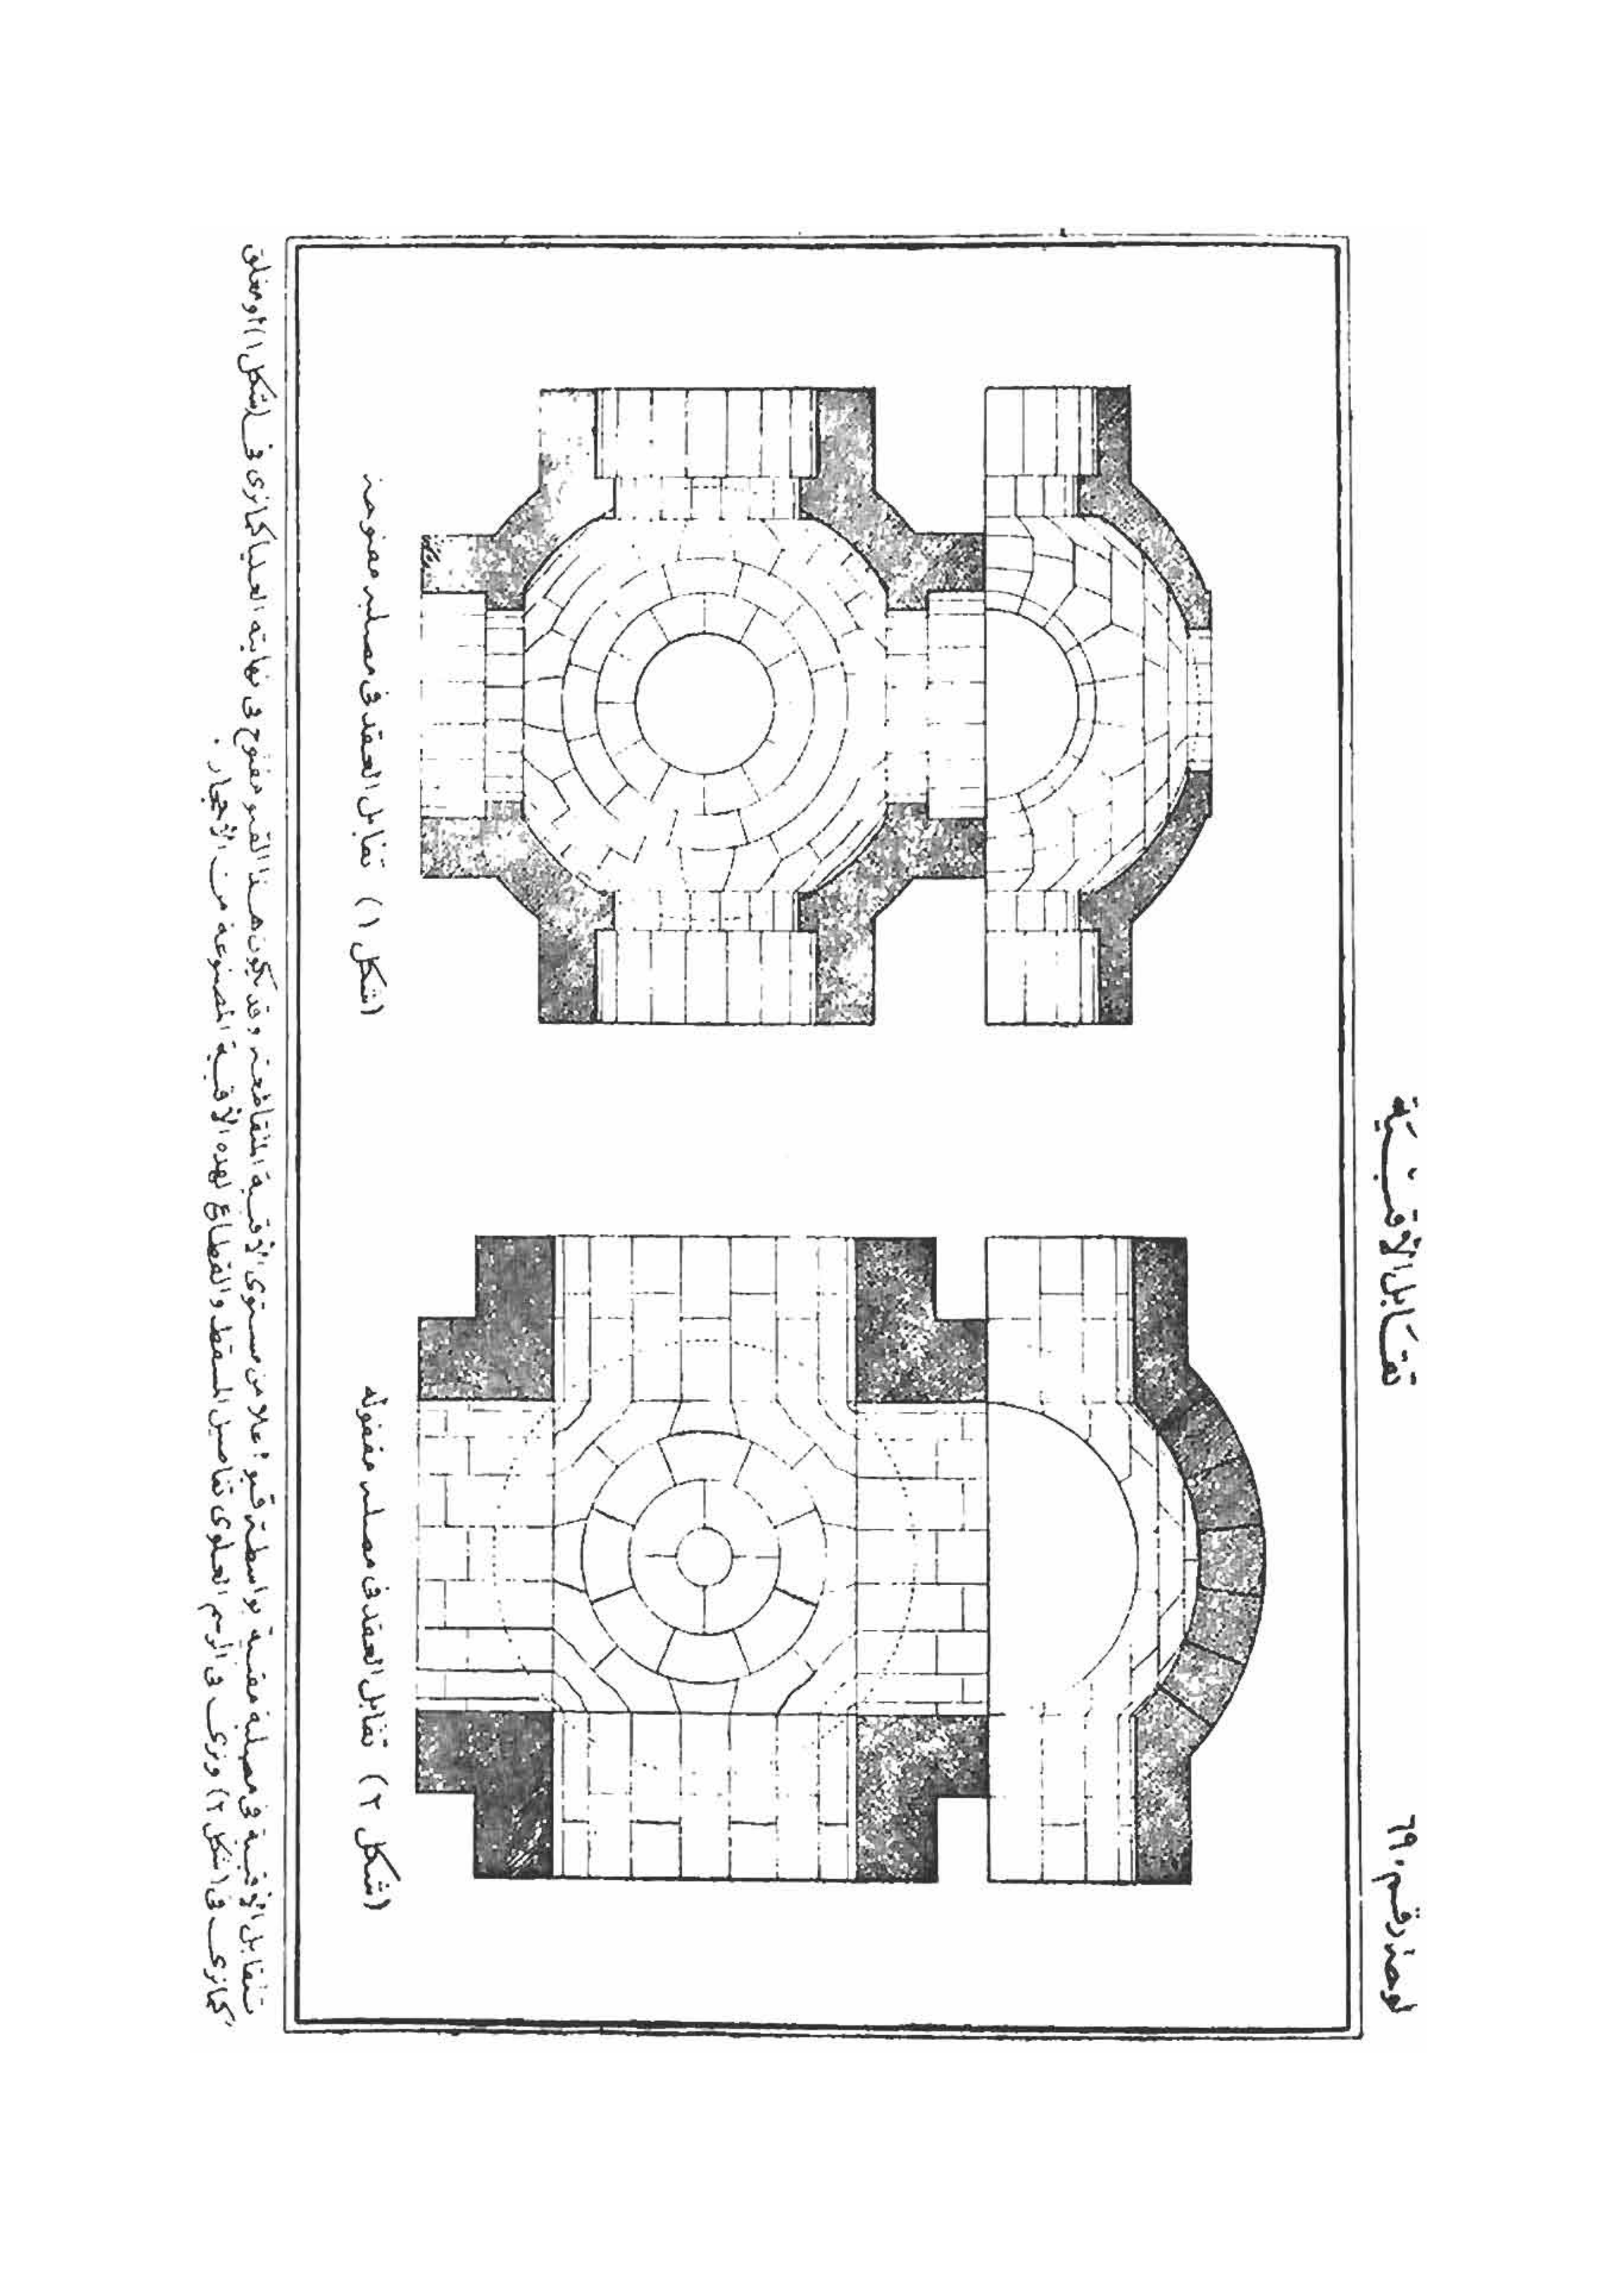 لوحة رقم ٦٩
تقابل الأقبية
(شكل ١) تقابل العقد فى مصلبه مفتوحة
(شكل ٢) تقابل العقد فى مصلبه مقفوله
تتقابل الأقبية فى مصلبة مقبية بواسطة قبو أعلا من مستوى الأقبية المتقاطعة وقد يكون هذا القبو مفتوح فى نهايته العليا كما نرى فى (شكل ١) أو مغلق
كما نرى فى (شكل ٢) ونرى فى الرسم العلوى تفاصيل المسقط والقطاع لهذه الأقبية المصنوعة من الأحجار .